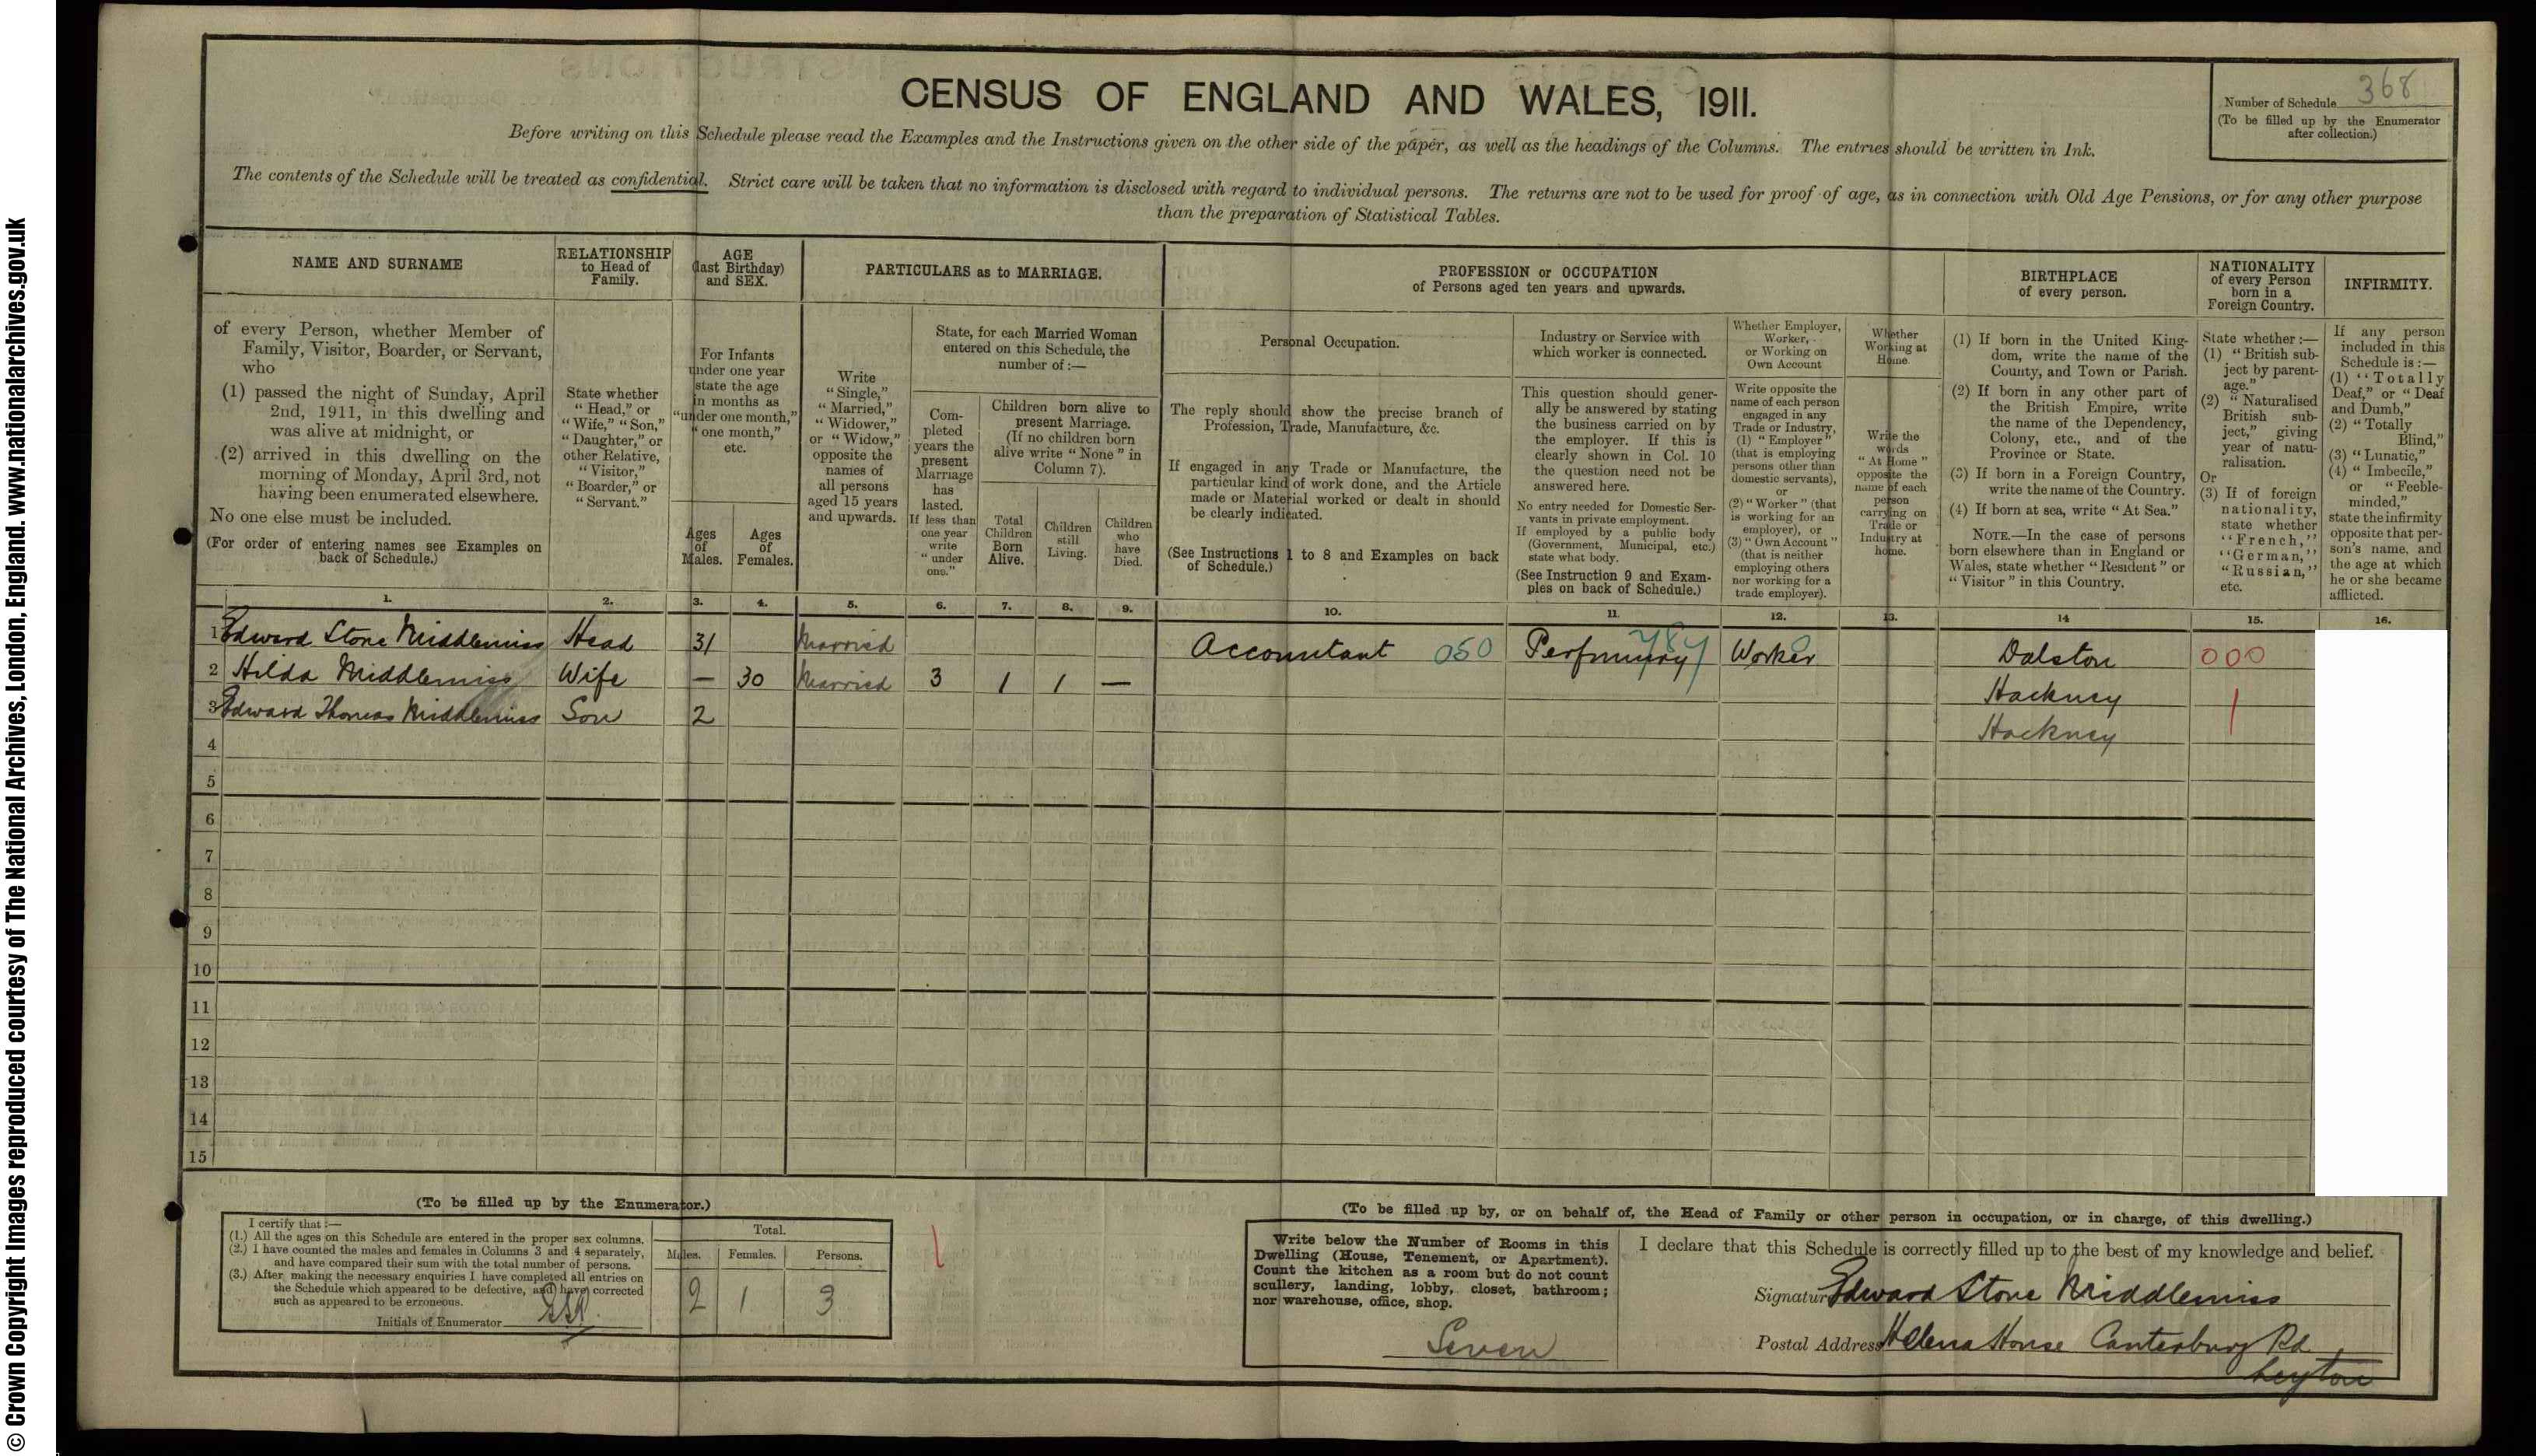 © Crown Copyright Images reproduced courtesy of The National Archives, London, England. www.nationalarchives.gov.uk
CENSUS OF ENGLAND AND WALES, 1911.
Number of Schedule 368
(To be filled up by the Enumerator
after collection.)
Before writing on this Schedule please read the Examples and the Instructions given on the other side of the paper, as well as the headings of the Columns. The entries should be written in Ink.
The contents of the Schedule will be treated as confidential. Strict care will be taken that no information is disclosed with regard to individual persons. The returns are not to be used for proof of age, as in connection with Old Age Pensions, or for any other purpose
than the preparation of Statistical Tables.
NAME AND SURNAME
of every Person, whether Member of
Family, Visitor, Boarder, or Servant,
who
(1) passed the night of Sunday, April
2nd, 1911, in this dwelling and
was alive at midnight, or
(2) arrived in this dwelling on the
morning of Monday, April 3rd, not
having been enumerated elsewhere.
No one else must be included.
(For order of entering names see Examples on
back of Schedule.)
RELATIONSHIP
to Head of
Family.
State whether
"Head," or
"Wife," "Son,"
"Daughter," or
other Relative,
"Visitor,"
"Boarder," or
"Servant."
AGE
(last Birthday)
and SEX.
For Infants
under one year
state the age
in months as
"under one month,"
"one month,"
etc.
Ages
of
Males.
Ages
of
Females.
PARTICULARS as to MARRIAGE.
Write
"Single,"
"Married,"
"Widower,"
or "Widow,"
opposite the
names of
all persons
aged 15 years
and upwards.
State, for each Married Woman
entered on this Schedule, the
number of :—
Com-
pleted
years the
present
Marriage
has
lasted.
If less than
one year
write
"under
one."
Children born alive to
present Marriage.
(If no children born
alive write "None" in
Column 7).
Total
Children
Born
Alive.
Children
still
Living.
Children
who
have
Died.
PROFESSION or OCCUPATION
of Persons aged ten years and upwards.
Personal Occupation.
The reply should show the precise branch of
Profession, Trade, Manufacture, &c.
If engaged in any Trade or Manufacture, the
particular kind of work done, and the Article
made or Material worked or dealt in should
be clearly indicated.
(See Instructions 1 to 8 and Examples on back
of Schedule.)
Industry or Service with
which worker is connected.
This question should gener-
ally be answered by stating
the business carried on by
the employer. If this is
clearly shown in Col. 10
the question need not be
answered here.
No entry needed for Domestic Ser-
vants in private employment.
If employed by a public body
(Government, Municipal, etc.)
state what body.
(See Instruction 9 and Exam-
ples on back of Schedule.)
Whether Employer,
Worker,
or Working on
Own Account
Write opposite the
name of each person
engaged in any
Trade or Industry,
(1) "Employer"
(that is employing
persons other than
domestic servants),
or
(2) "Worker" (that
is working for an
employer), or
(3) "Own Account"
(that is neither
employing others
nor working for a
trade employer).
Whether
Working at
Home.
Write the
words
"At Home"
opposite the
name of each
person
carrying on
Trade or
Industry at
home.
BIRTHPLACE
of every person.
(1) If born in the United King-
dom, write the name of the
County, and Town or Parish.
(2) If born in any other part of
the British Empire, write
the name of the Dependency,
Colony, etc., and of the
Province or State.
(3) If born in a Foreign Country,
write the name of the Country.
(4) If born at sea, write "At Sea."
NOTE.—In the case of persons
born elsewhere than in England or
Wales, state whether "Resident" or
"Visitor" in this Country.
NATIONALITY
of every Person
born in a
Foreign Country.
State whether :—
(1) "British sub-
ject by parent-
age."
(2) "Naturalised
British sub-
ject," giving
year of natu-
ralisation.
Or
(3) If of foreign
nationality,
state whether
"French,"
"German,"
"Russian,"
etc.
INFIRMITY.
If any person
included in this
Schedule is :—
(1) "Totally
Deaf," or "Deaf
and Dumb,"
(2) "Totally
Blind,"
(3) "Lunatic,"
(4) "Imbecile,"
or "Feeble-
minded,"
state the infirmity
opposite that per-
son's name, and
the age at which
he or she became
afflicted.
1. 2. 3. 4. 5. 6. 7. 8. 9. 10. 11. 12. 13. 14 15. 16.
1 Edward Stone Middlemiss Head 31 Married Accountant 050 Perfumery 787 Worker Dalston 000
2 Hilda Middlemiss Wife — 30 Married 3 1 1 — Hackney 1
3 Edward Thomas Middlemiss Son 2 Hackney
4
5
6
7
8
9
10
11
12
13
14
15
(To be filled up by the Enumerator.)
I certify that :—
(1.) All the ages on this Schedule are entered in the proper sex columns.
(2.) I have counted the males and females in Columns 3 and 4 separately,
and have compared their sum with the total number of persons.
(3.) After making the necessary enquiries I have completed all entries on
the Schedule which appeared to be defective, and have corrected
such as appeared to be erroneous.
Initials of Enumerator
Total.
Males. Females. Persons.
2 1 3
1
(To be filled up by, or on behalf of, the Head of Family or other person in occupation, or in charge, of this dwelling.)
Write below the Number of Rooms in this
Dwelling (House, Tenement, or Apartment).
Count the kitchen as a room but do not count
scullery, landing, lobby, closet, bathroom;
nor warehouse, office, shop.
Seven
I declare that this Schedule is correctly filled up to the best of my knowledge and belief.
Signature Edward Stone Middlemiss
Postal Address Helena House Canterbury Rd.
Leyton